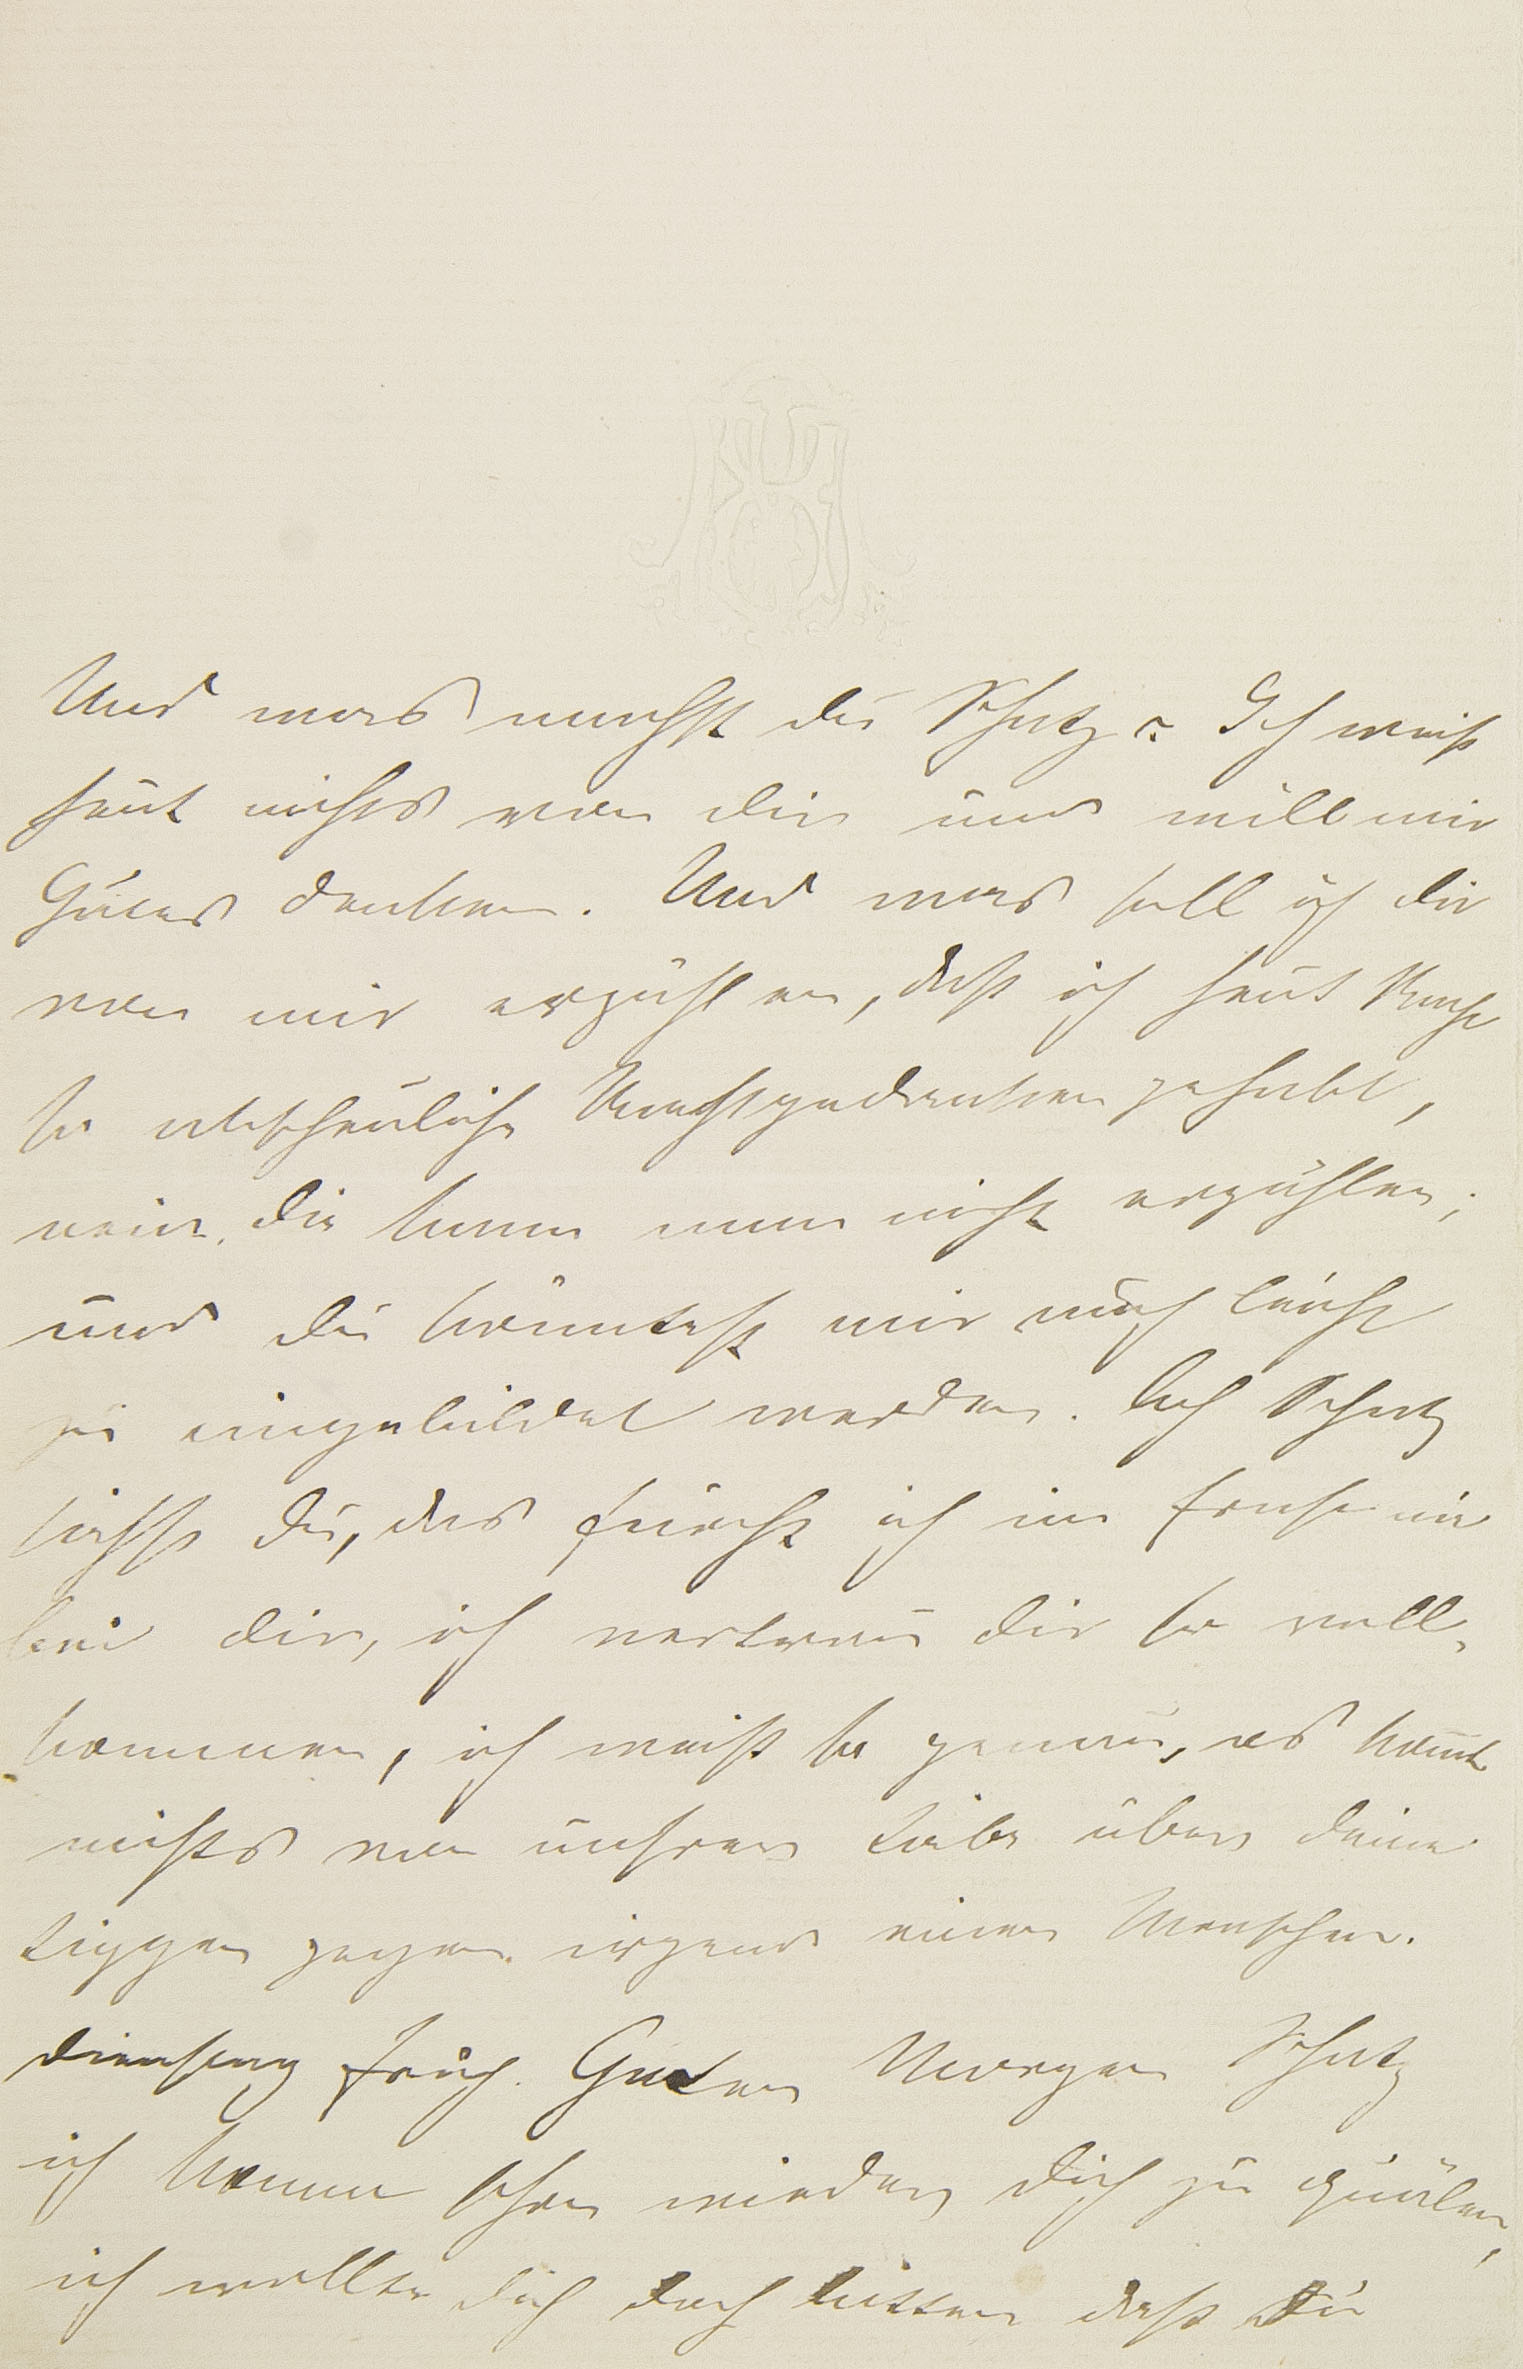 Und was machst du Schatz? Ich weiß
heut nichts von dir und will mir
Gutes denken. Und was soll ich dir
von mir erzählen, daß ich heut Nacht
so abscheuliche Nachtgedanken gehabt,
nein, die kann man nicht erzählen;
und du könntest mir auch leicht
zu eingebildet werden. Ach Schatz
siehst du, das fürcht ich im Ernst nie
bei dir, ich vertrau dir so voll-
kommen, ich weiß so genau, es kommt
nichts von unsrer Liebe über deine
Lippen gegen irgend einen Menschen.
Dienstag früh. Guten Morgen Schatz
ich komme schon wieder dich zu quälen,
ich wollte dich doch bitten daß du